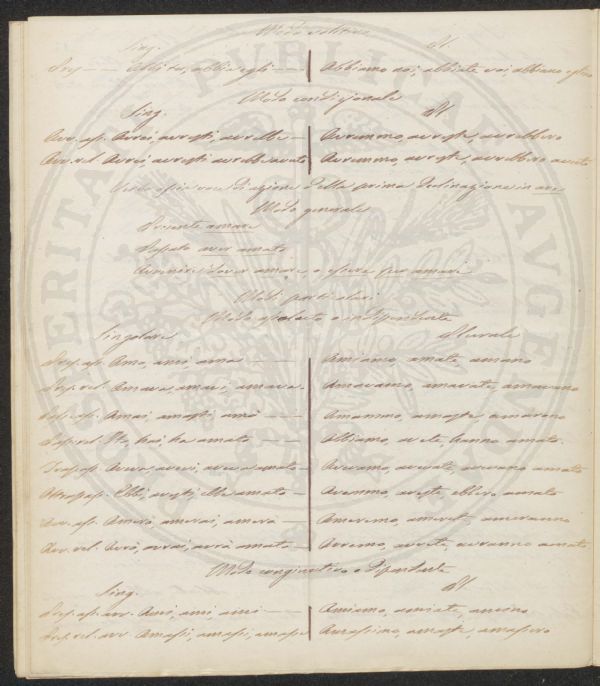 Modo
Sing. Pl.
Abbi tu, abbia egli — Abbiamo noi, abbiate voi, abbiano eglino
Modo condizionale
Sing. Pl.
Avv. ass. Avrei, avresti, avrebbe — Avremmo, avreste, avrebbero
Avv. rel. Avrei avresti avrebbe avuto Avremmo, avreste, avrebbero avuto
Verbo ossia voce di azione della prima Declinazione in are
Modo generale
Presente amare
Passato aver amato
Avvenire dover amare, o essere per amare
Modi particolari
Modo assoluto o indipendente
Singolare Plurale
Pres. ass. Amo, ami, ama — Amiamo, amate, amano
Pres. rel. Amava, amavi, amava. Amavamo, amavate, amavano
Pass. ass. Amai, amasti, amò — Amammo, amaste, amarono
Pass. rel. Ho, hai, ha amato — Abbiamo, avete, hanno amato.
Trap. ass. Aveva, avevi, aveva amato — Avevamo, avevate, avevano amato
Ebbi, avesti, ebbe amato — Avemmo, aveste, ebbero amato
Avv. ass. Amerò, amerai, amerà — Ameremo, amerete, ameranno
Avv. rel. Avrò, avrai, avrà amato — Avremo, avrete, avranno amato
Modo congiuntivo o dipendente
Sing. Pl.
Pres. ass. avv. Ami, ami, ami — Amiamo, amiate, amino
Pres. rel. avv. Amassi, amassi, amasse Amassimo, amaste, amassero
PUBLICAE AUGENDAE PROSPERITATI